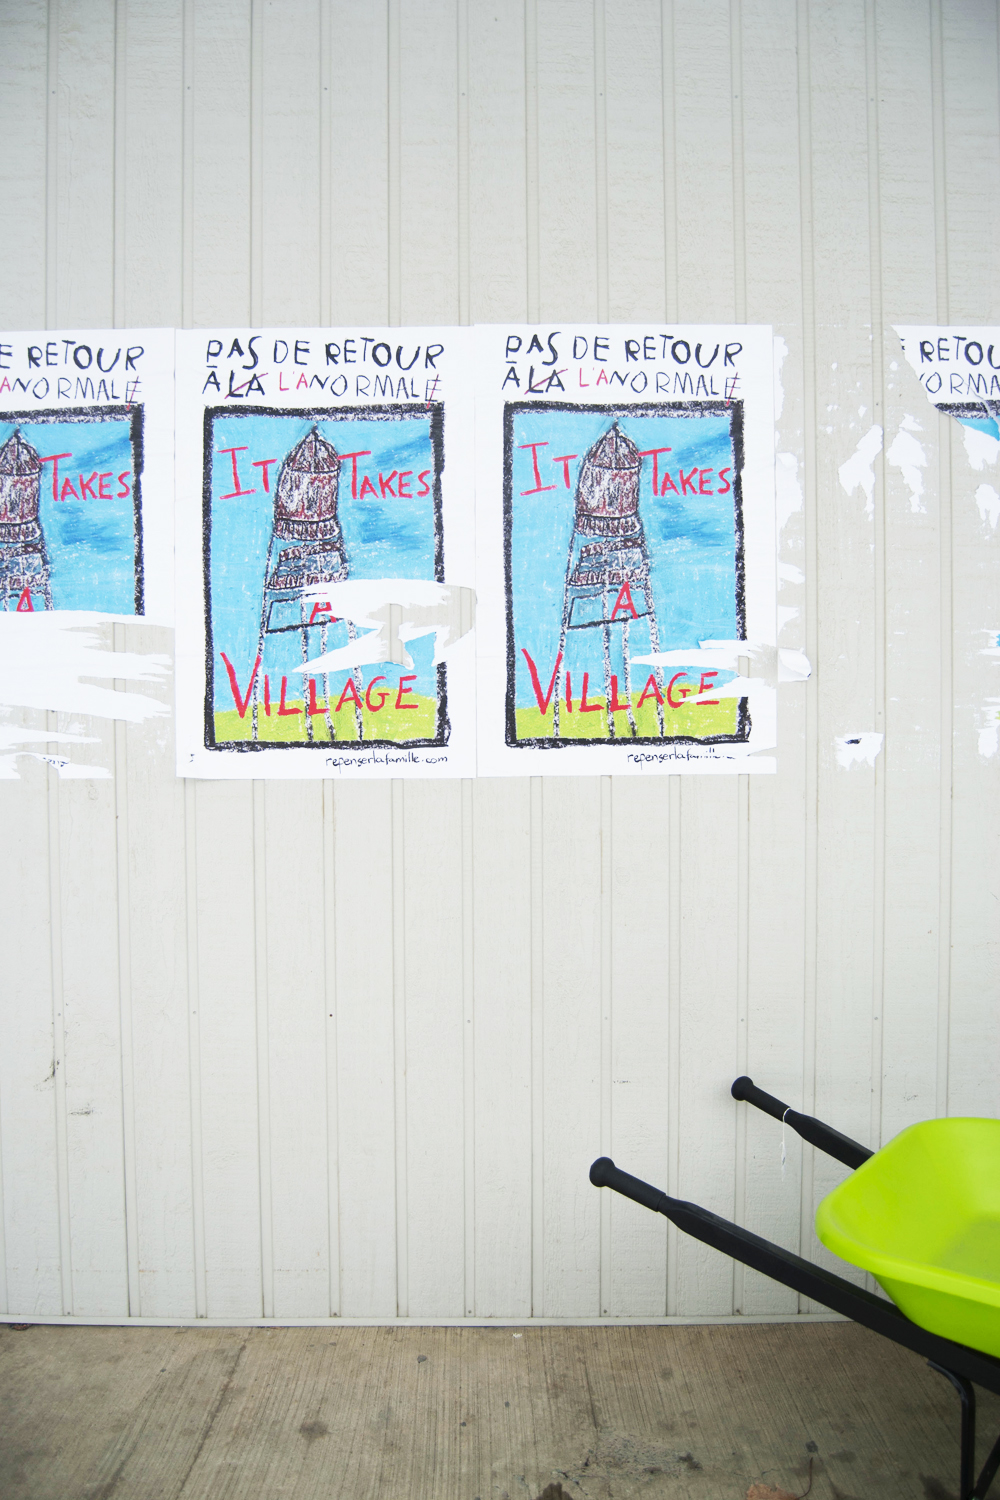 E RETOUR
L'ANORMALE
TAKES
A
PAS DE RETOUR
À LA L'ANORMALE
IT TAKES
A
VILLAGE
repenserlafamille.com
PAS DE RETOUR
À LA L'ANORMALE
IT TAKES
A
VILLAGE
repenserlafamille
RETOU
ORMA